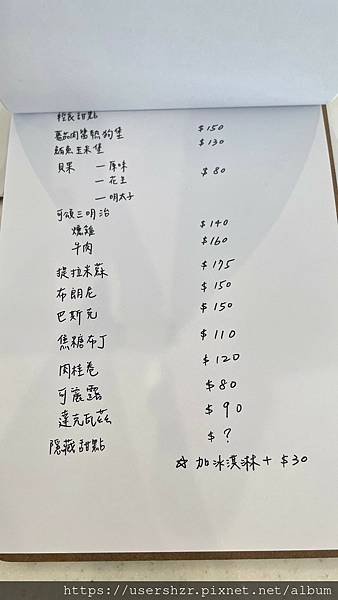 輕食甜點
蕈菇肉醬熱狗堡 $150
鮪魚玉米堡 $130
貝果 —原味 $80
—花生
—明太子
可頌三明治
燻雞 $140
牛肉 $160
提拉米蘇 $175
布朗尼 $150
巴斯克 $150
焦糖布丁 $110
肉桂卷 $120
可麗露 $80
達克瓦茲 $90
隱藏甜點 $?
☆加冰淇淋+$30
https://usershzr.pixnet.net/album